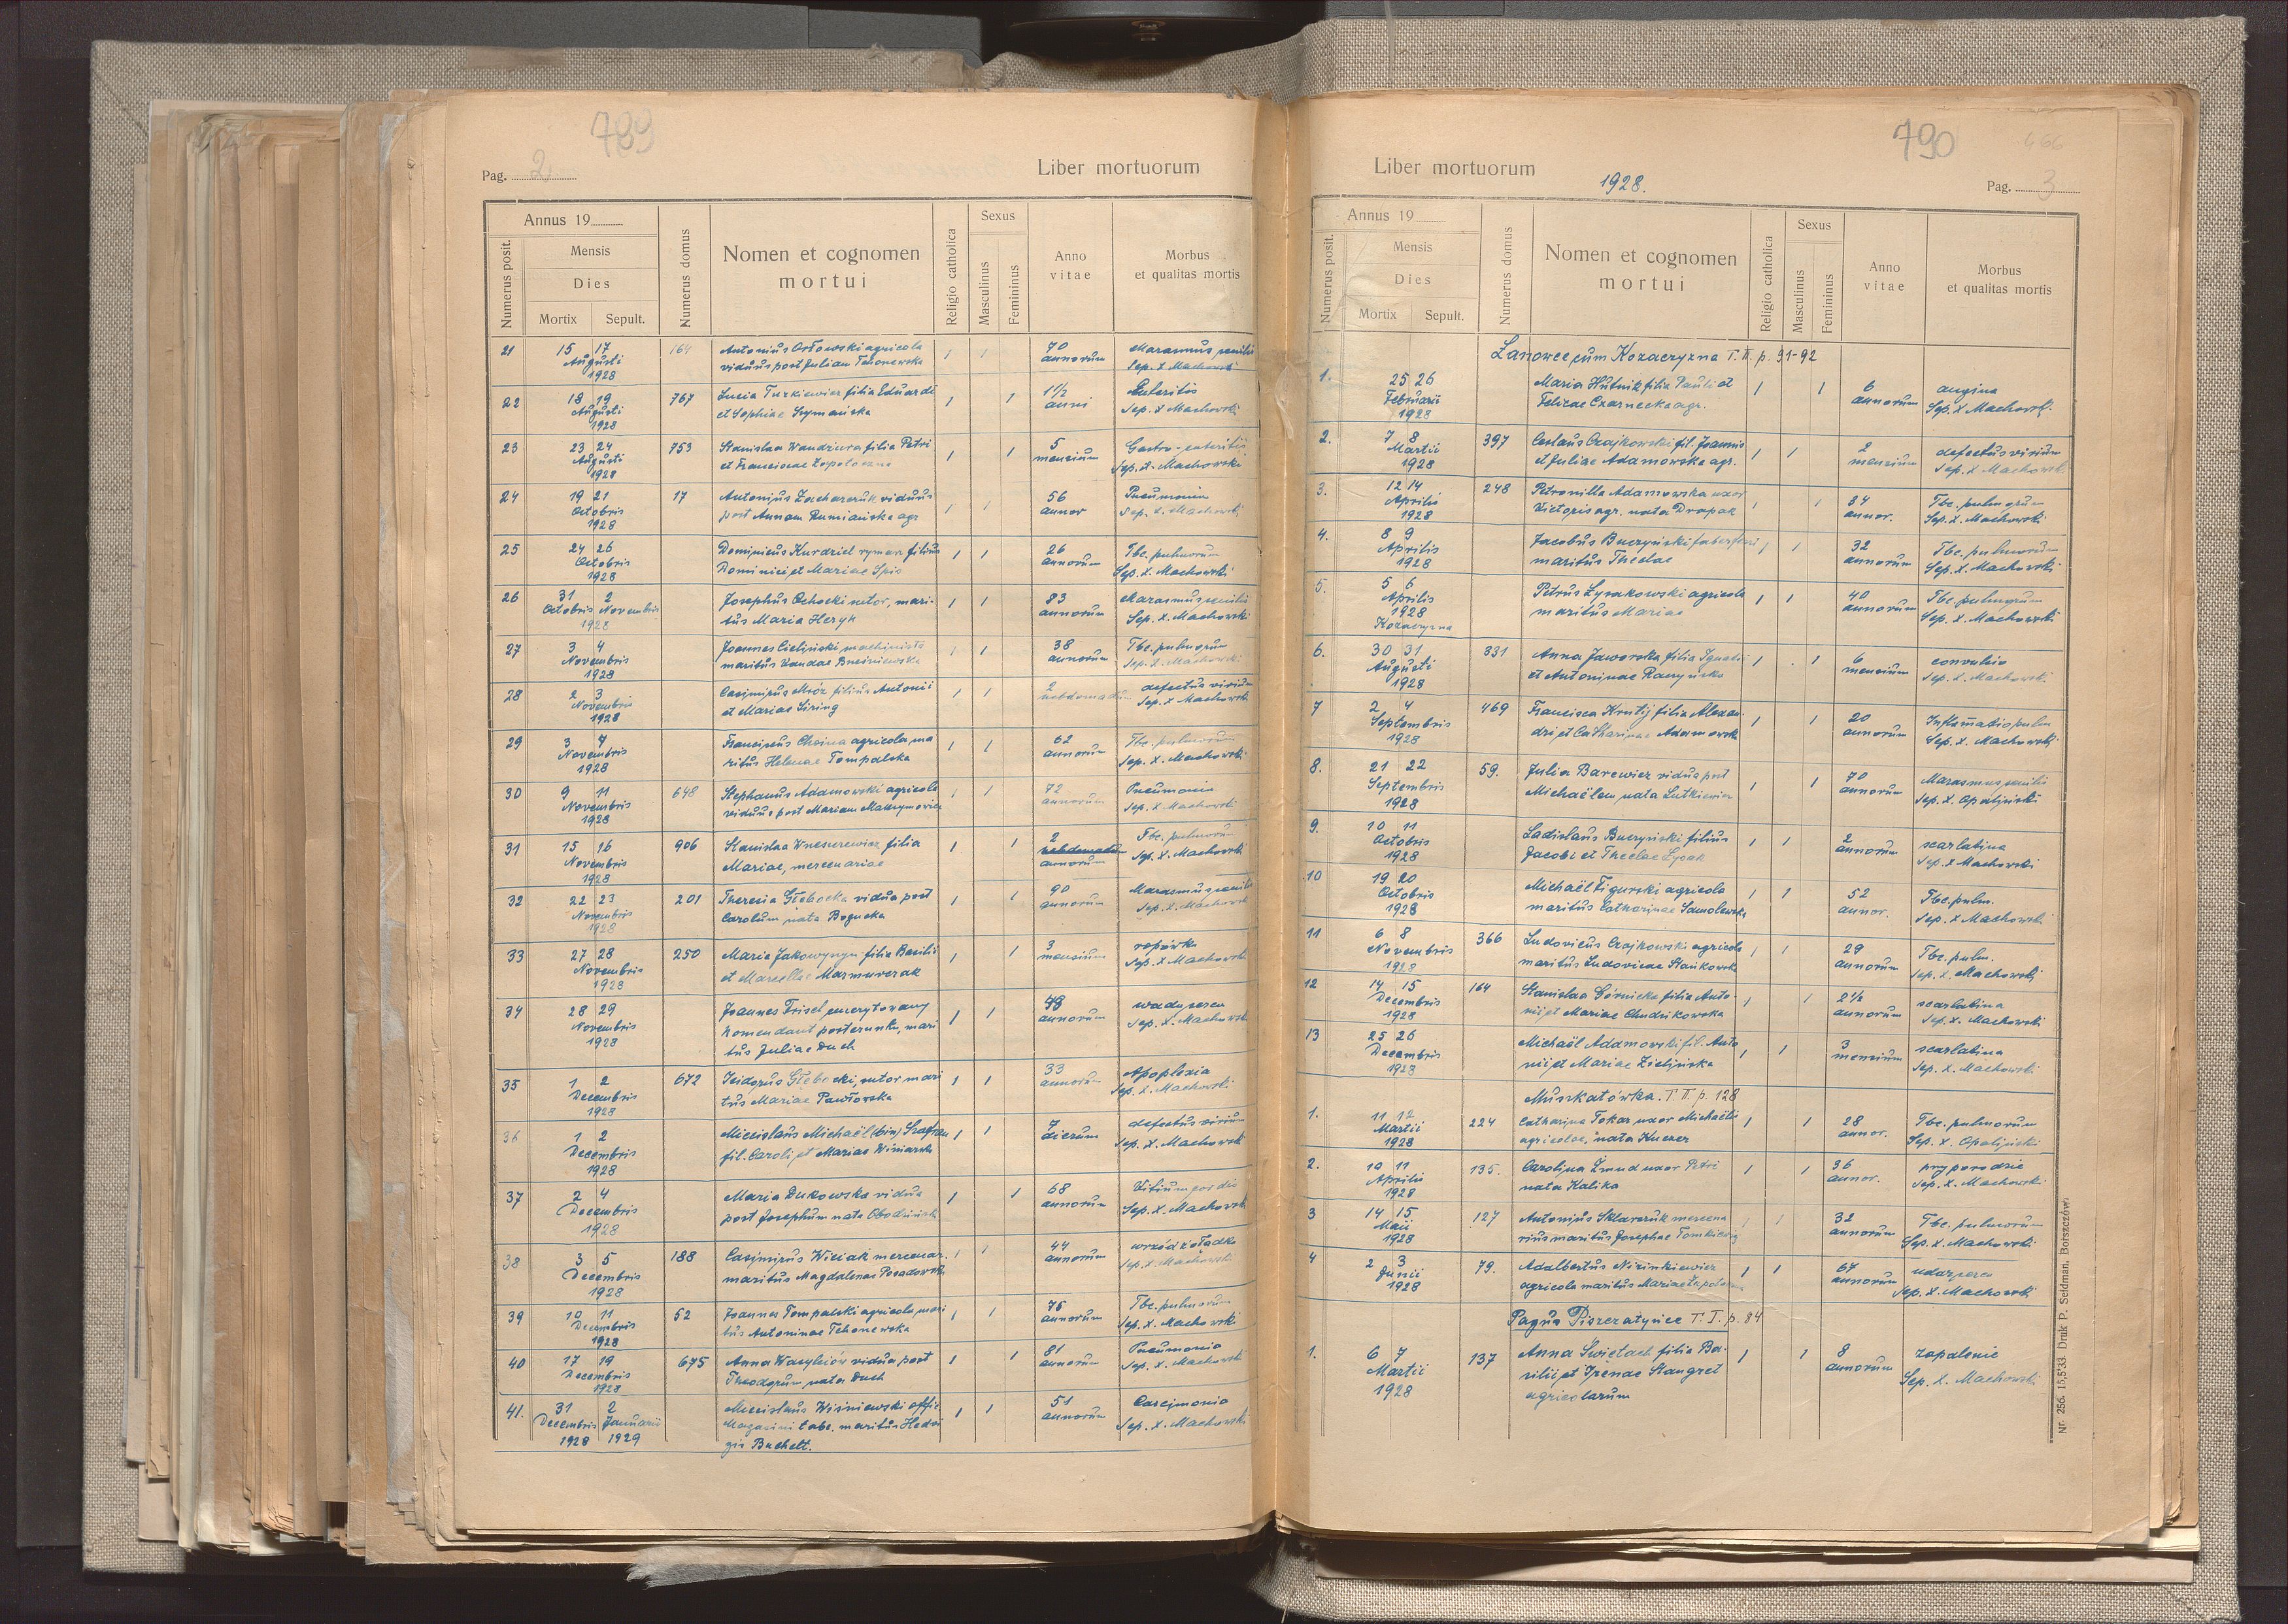 789
Pag. 2
Liber mortuorum
Annus 19
Numerus posit.
Mensis
Dies
Mortix
Sepult.
Numerus domus
Nomen et cognomen
mortui
Religio catholica
Sexus
Masculinus
Femininus
Anno
vitae
Morbus
et qualitas mortis
21 15 17 164 Antonius Orłowski agricola 1 1 70 Marasmus senilis
Augusti viduus post Julian annorum Sep. X Machowski
1928
22 18 19 767 Lucia Turkiewicz filia Eduardi 1 1 1 1/2 Enteritis
Augusti et Sophiae Szymańska anni Sep. X Machowski
1928
23 23 24 753 Stanislaa Wandziura filia Petri 1 1 5 Gastro-enteritis
Augusti et Franciscae mensium Sep. X. Machowski
1928
24 19 21 17 Antonius Zacharczuk viduus 1 1 56 Pneumonia
Octobris post Annam Rumiańska agr annor Sep. X. Machowski
1928
25 24 26 Dominicus Kurdziel rymarz filius 1 1 26 Tbc. pulmorum
Octobris Dominici et Mariae Spic annorum Sep. X. Machowski
1928
26 31 2 Josephus Ochocki sutor, mari- 1 1 83 Marasmus senilis
Octobris Novembris tus Maria Heryk annorum Sep. X. Machowski
1928
27 3 4 Joannes Cieliński machinista 1 1 38 Tbc. pulmorum
Novembris maritus Vandae annorum Sep. X. Machowski
1928
28 2 3 Casimirus Mróz filius Antonii 1 1 2 defectus virium
Novembris et Mariae Siring hebdomadum Sep. X Machowski
1928
29 3 4 Franciscus Choina agricola, ma 1 1 62 Tbc. pulmorum
Novembris ritus Helenae Tompalska annorum Sep. X. Machowski
1928
30 9 11 648 Stephanus Adamowski agricola 1 1 72 Pneumonia
Novembris viduus post Mariam Maksymowicz annorum Sep. X. Machowski
1928
31 15 16 906 Stanislaa filia 1 1 2 Tbc. pulmorum
Novembris Mariae, mercenariae annorum Sep. X. Machowski
1928
32 22 23 201 Theresia Głębocka vidua post 1 1 90 Marasmus senilis
Novembris Carolum nata Bogucka annorum Sep. X. Machowski
1928
33 27 28 250 Maria filia Basilii 1 1 3 ropówka
Novembris et Marcellae mensium Sep. X Machowski
1928
34 28 29 Joannes Frisel, emerytowany 1 1 48 wada serca
Novembris komendant posterunku, mari annorum Sep. X. Machowski
1928 tus Juliae Duch
35 1 2 672 Isidorus Głębocki, sutor mari 1 1 33 Apoplexia
Decembris tus Mariae Pawłowska annorum Sep. X. Machowski
1928
36 1 2 Miecislaus Michaël (bin) Szafran 1 1 7 defectus virium
Decembris fil. Caroli et Mariae Winiarska dierum Sep. X. Machowski
1928
37 2 4 Maria Dukowska vidua 1 1 68 Vitium cordis
Decembris post Josephum nata annorum Sep. X. Machowski
1928
38 3 5 188 Casimirus Wiciak mercenar. 1 1 44 wrzód żołądka
Decembris maritus Magdalenae Posadowska annorum Sep. X Machowski
1928
39 10 11 52 Joannes Tompalski agricola, mari 1 1 75 Tbc. pulmorum
Decembris tus Antoninae Tchonewska annorum Sep. X. Machowski
1928
40 17 19 675 Anna Wasylciów vidua post 1 1 81 Pneumonia
Decembris Theodorum nata Duch annorum Sep. X. Machowski
1928
41. 31 2 Miecislaus Wiśniewski offic. 1 1 51 Carcimonia
Decembris Januarii Magasini tabc. maritus Hedvi annorum Sep. X. Machowski
1928 1929 gis Buchelt.
790
466
Liber mortuorum
1928.
Pag. 3
Annus 19
Numerus posit.
Mensis
Dies
Mortix
Sepult.
Numerus domus
Nomen et cognomen
mortui
Religio catholica
Sexus
Masculinus
Femininus
Anno
vitae
Morbus
et qualitas mortis
Łanowce cum Kozaczyzna T. II. p. 91-92
1. 25 26 Maria Hutnik filia Pauli et 1 1 6 angina
Februarii Felicae Czarnecka agr. annorum Sep. X Machowski
1928
2. 7 8 397 Ceslaus Czajkowski fil. Joannis 1 1 2 defectus virium
Martii et Juliae Adamowska agr. mensium Sep. X Machowski
1928
3. 12 14 248 Petronilla Adamowska uxor 1 1 84 Tbc. pulmorum
Aprilis Victoris agr. nata Drapak annor. Sep. X. Machowski
1928
4. 8 9 Jacobus Buczyński faber ferri 1 1 32 Tbc. pulmorum
Aprilis maritus Theclae annorum Sep. X. Machowski
1928
5. 5 6 Petrus Łysakowski agricola 1 1 40 Tbc. pulmorum
Aprilis maritus Mariae annorum Sep. X. Machowski
1928
Kozaczyzna
6. 30 31 831 Anna Jaworska filia Ignatii 1 1 6 convulsio
Augusti et Antoninae mensium Sep. X. Machowski
1928
7 2 4 469 Francisca Krutij filia Alexan- 1 1 20 Inflamatio pulm
Septembris dri et Catharinae Adamowska annorum Sep. X. Machowski
1928
8. 21 22 59. Julia Barewicz vidua post 1 1 70 Marasmus senilis
Septembris Michaëlem nata Lutkiewicz annorum Sep. X. Opaliński
1928
9. 10 11 Ladislaus Buczyński filius 1 1 2 scarlatina
Octobris Jacobi et Theclae Łysak annorum Sep. X Machowski
1928
10 19 20 Michaël Figurski agricola 1 1 52 Tbc. pulm.
Octobris maritus Catharinae Samolewska annor. Sep. X Machowski
1928
11 6 8 366 Ludovicus Czajkowski agricola 1 1 29 Tbc. pulm.
Novembris maritus Ludovicae Stańkowska annorum Sep. X. Machowski
1928
12 14 15 164 Stanislaa Górnicka filia Anto- 1 1 2 1/2 scarlatina
Decembris nii et Mariae Chudzikowska annorum Sep. X. Machowski
1928
13 25 26 Michaël Adamowski fil. Anto 1 1 3 scarlatina
Decembris nii et Mariae Zielińska mensium Sep. X. Machowski
1928
Muszkatówka. T. II. p. 128
1. 11 12 224 Catharina Tokar uxor Michaëlis 1 1 28 Tbc. pulmorum
Martii agricolae, nata Kucher annor. Sep. X. Opaliński
1928
2. 10 11 135. Carolina Żmud uxor Petri 1 1 36 przy porodzie
Aprilis nata Kalika annor. Sep. X. Machowski
1928
3 14 15 127 Antonius Sklarczuk mercena 1 1 32 Tbc. pulmorum
Maii rius maritus Josephae Tomkiewicz annorum Sep. X. Machowski
1928
4 2 3 79. Adalbertus Nizinkiewicz 1 1 67 udar serca
Junii agricola maritus Mariae annorum Sep. X. Machowski
1928
Pagus Piszczatyńce T. I. p. 84
1. 6 7 137 Anna Świetach filia Ba- 1 1 8 zapalenie
Martii silii et Irenae Stangret annorum Sep. X. Machowski
1928 agricolarum
Nr. 256. 15,5'33. Druk P. Seidman. Borszczów.